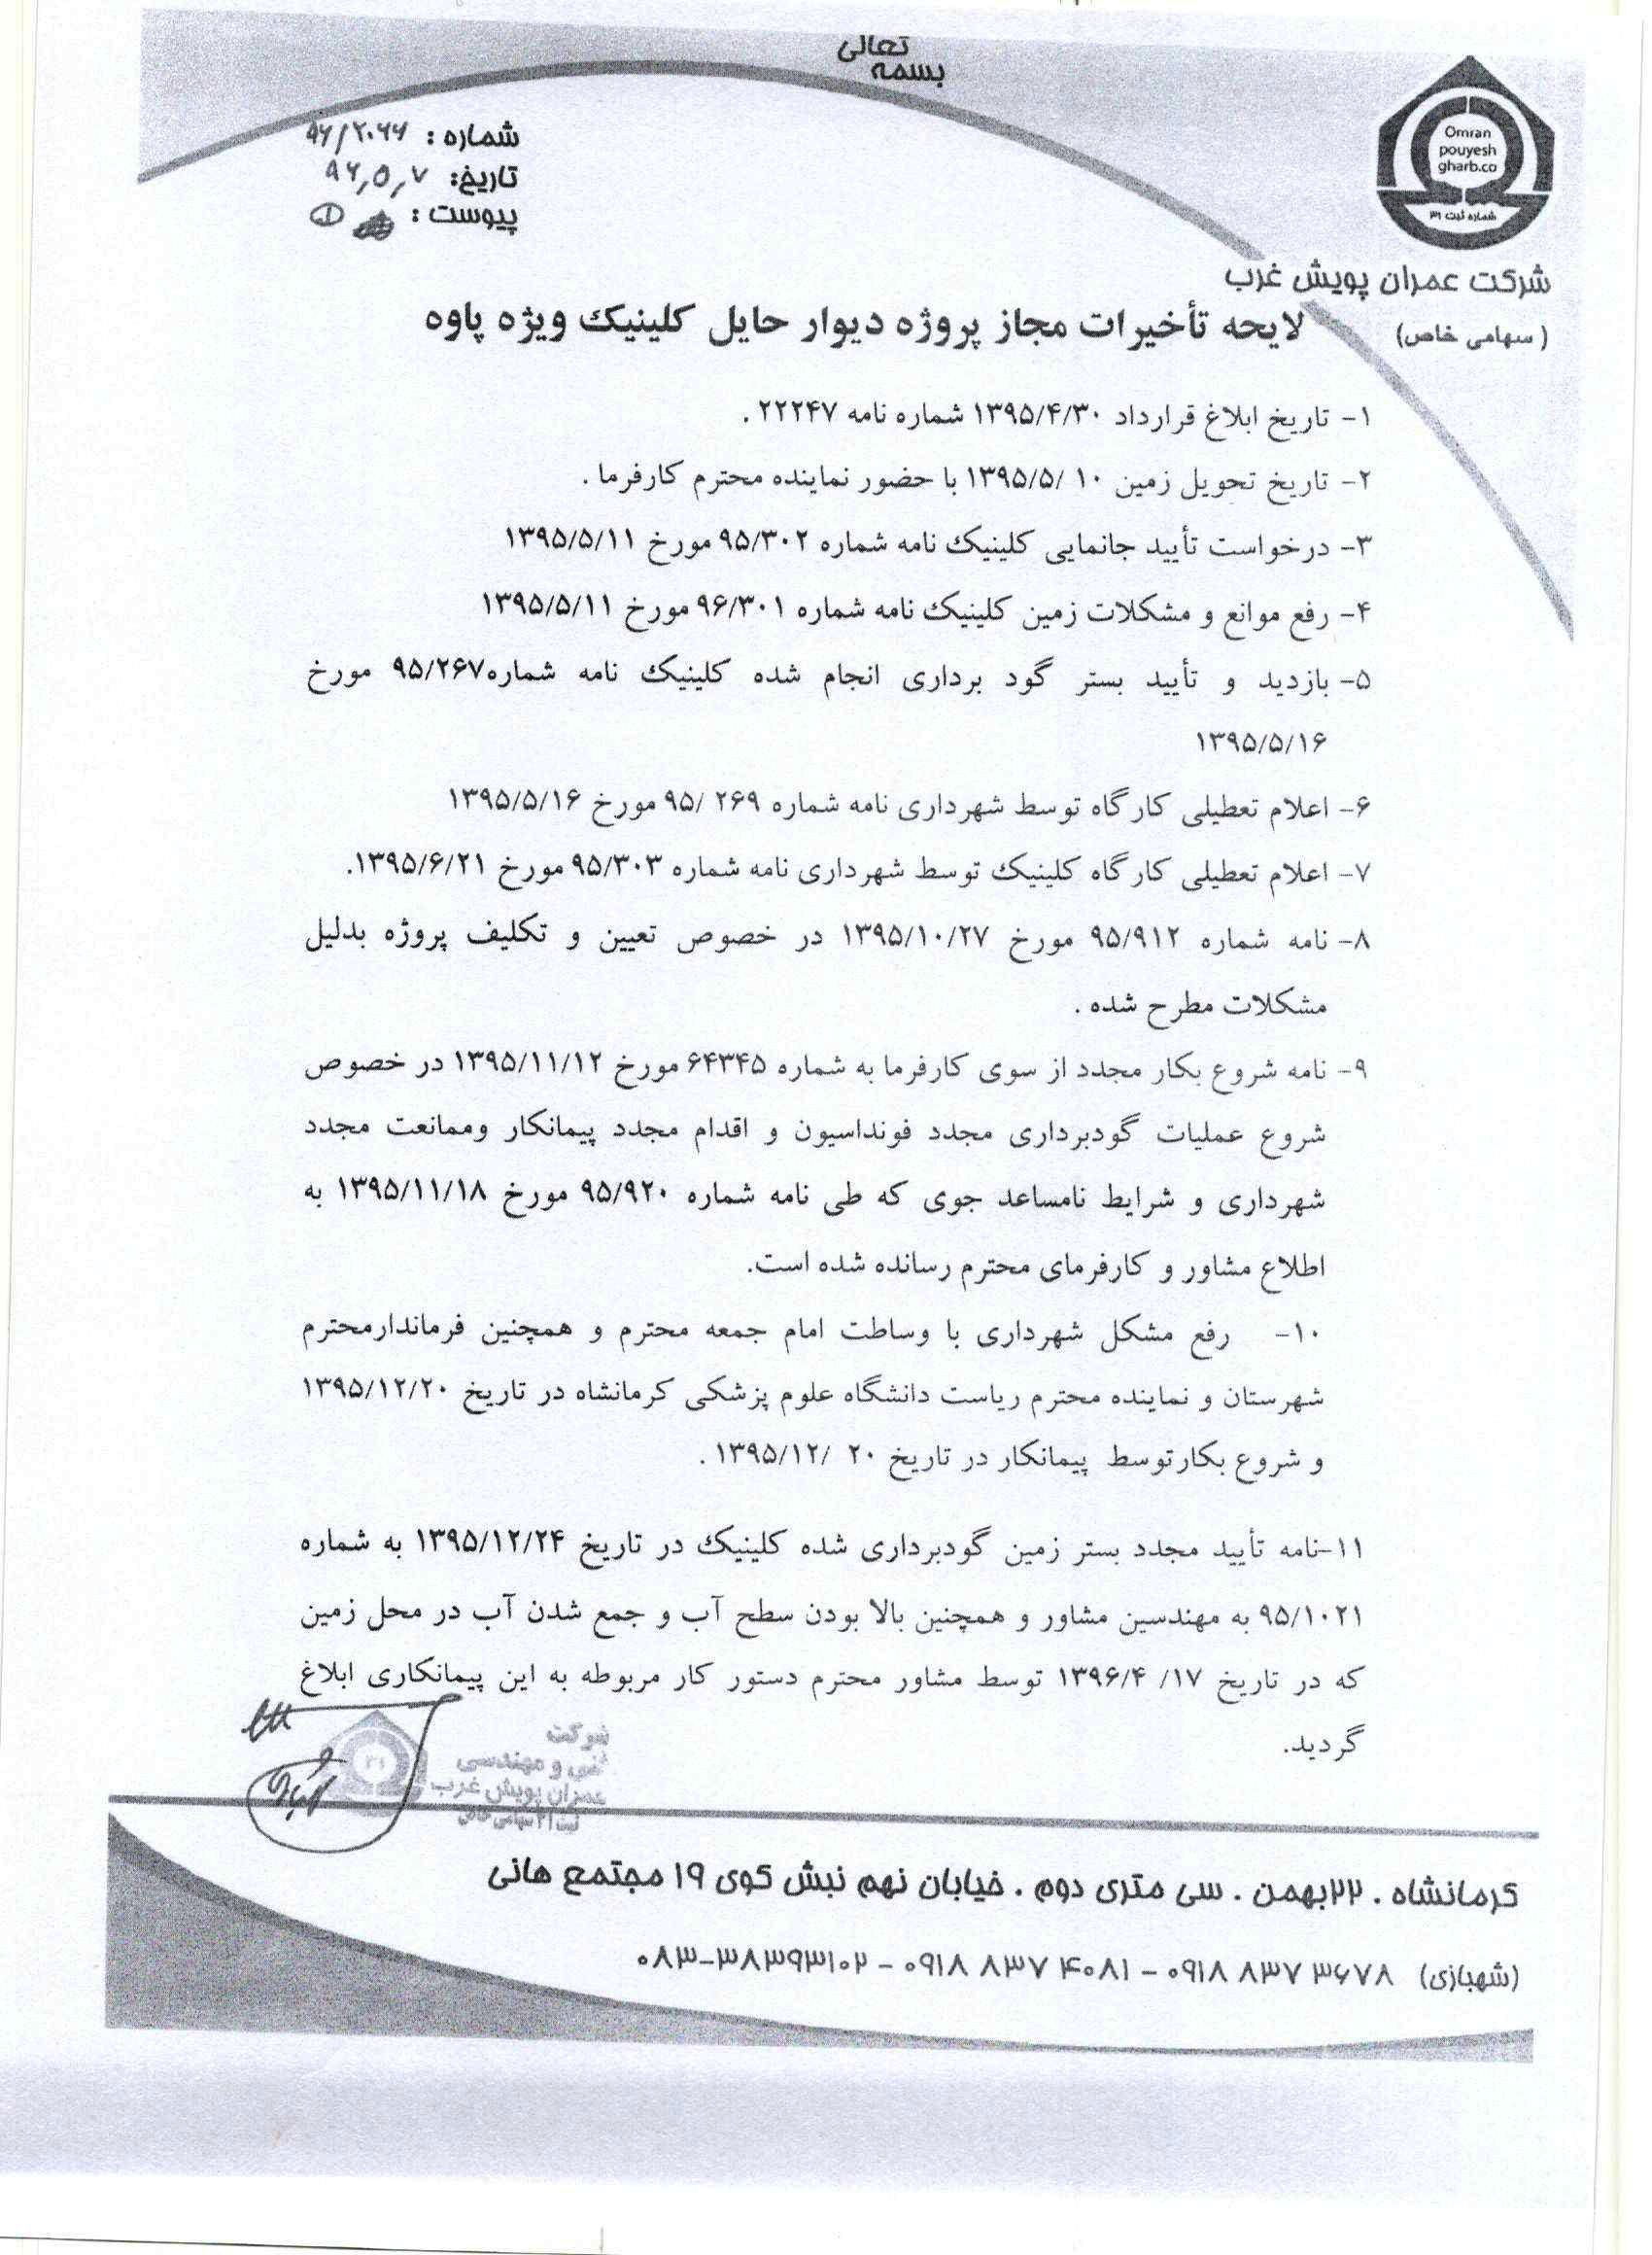 بسمه تعالی
شماره : ۹۶/۲۰۶۶
تاریخ: ۹۶,۵,۷
پیوست :
Omran
pouyesh
gharb.co
شماره ثبت ۳۱
شرکت عمران پویش غرب
(سهامی خاص)
لایحه تأخیرات مجاز پروژه دیوار حایل کلینیک ویژه پاوه
۱- تاریخ ابلاغ قرارداد ۱۳۹۵/۴/۳۰ شماره نامه ۲۲۲۴۷ .
۲- تاریخ تحویل زمین ۱۰ /۱۳۹۵/۵ با حضور نماینده محترم کارفرما .
۳- درخواست تأیید جانمایی کلینیک نامه شماره ۹۵/۳۰۲ مورخ ۱۳۹۵/۵/۱۱
۴- رفع موانع و مشکلات زمین کلینیک نامه شماره ۹۶/۳۰۱ مورخ ۱۳۹۵/۵/۱۱
۵- بازدید و تأیید بستر گود برداری انجام شده کلینیک نامه شماره۹۵/۲۶۷ مورخ
۱۳۹۵/۵/۱۶
۶- اعلام تعطیلی کارگاه توسط شهرداری نامه شماره ۲۶۹ /۹۵ مورخ ۱۳۹۵/۵/۱۶
۷- اعلام تعطیلی کارگاه کلینیک توسط شهرداری نامه شماره ۹۵/۳۰۳ مورخ ۱۳۹۵/۶/۲۱.
۸- نامه شماره ۹۵/۹۱۲ مورخ ۱۳۹۵/۱۰/۲۷ در خصوص تعیین و تکلیف پروژه بدلیل
مشکلات مطرح شده .
۹- نامه شروع بکار مجدد از سوی کارفرما به شماره ۶۴۳۴۵ مورخ ۱۳۹۵/۱۱/۱۲ در خصوص
شروع عملیات گودبرداری مجدد فونداسیون و اقدام مجدد پیمانکار وممانعت مجدد
شهرداری و شرایط نامساعد جوی که طی نامه شماره ۹۵/۹۲۰ مورخ ۱۳۹۵/۱۱/۱۸ به
اطلاع مشاور و کارفرمای محترم رسانده شده است.
۱۰- رفع مشکل شهرداری با وساطت امام جمعه محترم و همچنین فرماندارمحترم
شهرستان و نماینده محترم ریاست دانشگاه علوم پزشکی کرمانشاه در تاریخ ۱۳۹۵/۱۲/۲۰
و شروع بکارتوسط پیمانکار در تاریخ ۲۰ /۱۳۹۵/۱۲ .
۱۱-نامه تأیید مجدد بستر زمین گودبرداری شده کلینیک در تاریخ ۱۳۹۵/۱۲/۲۴ به شماره
۹۵/۱۰۲۱ به مهندسین مشاور و همچنین بالا بودن سطح آب و جمع شدن آب در محل زمین
که در تاریخ ۱۷/ ۱۳۹۶/۴ توسط مشاور محترم دستور کار مربوطه به این پیمانکاری ابلاغ
گردید.
شرکت
فنی و مهندسی
عمران پویش غرب
ثبت ۳۱ سهامی خاص
کرمانشاه . ۲۲بهمن . سی متری دوم . خیابان نهم نبش کوی ۱۹ مجتمع هانی
(شهبازی) ۰۹۱۸ ۸۳۷ ۳۶۷۸ - ۰۹۱۸ ۸۳۷ ۴۰۸۱ - ۰۸۳-۳۸۳۹۳۱۰۲